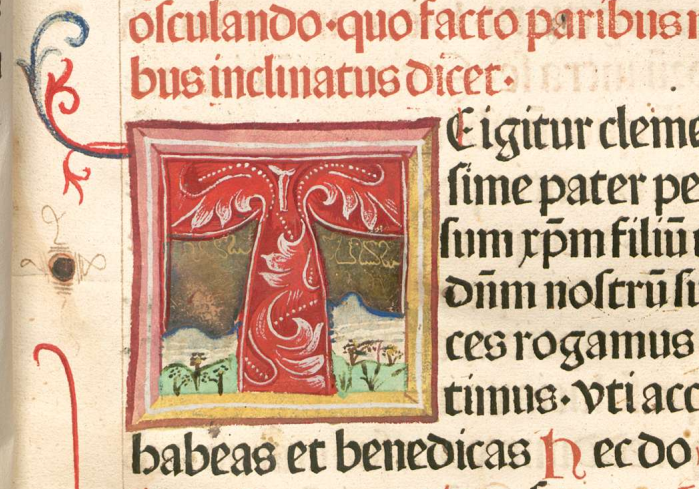 osculando·quo facto paribus
bus inclinatus dicet·
TE igitur cleme
sime pater pe
sum xp̄m filiū
dn̄m nostrū si
ces rogamus
timus·vti acc
habeas et benedicas h ec do